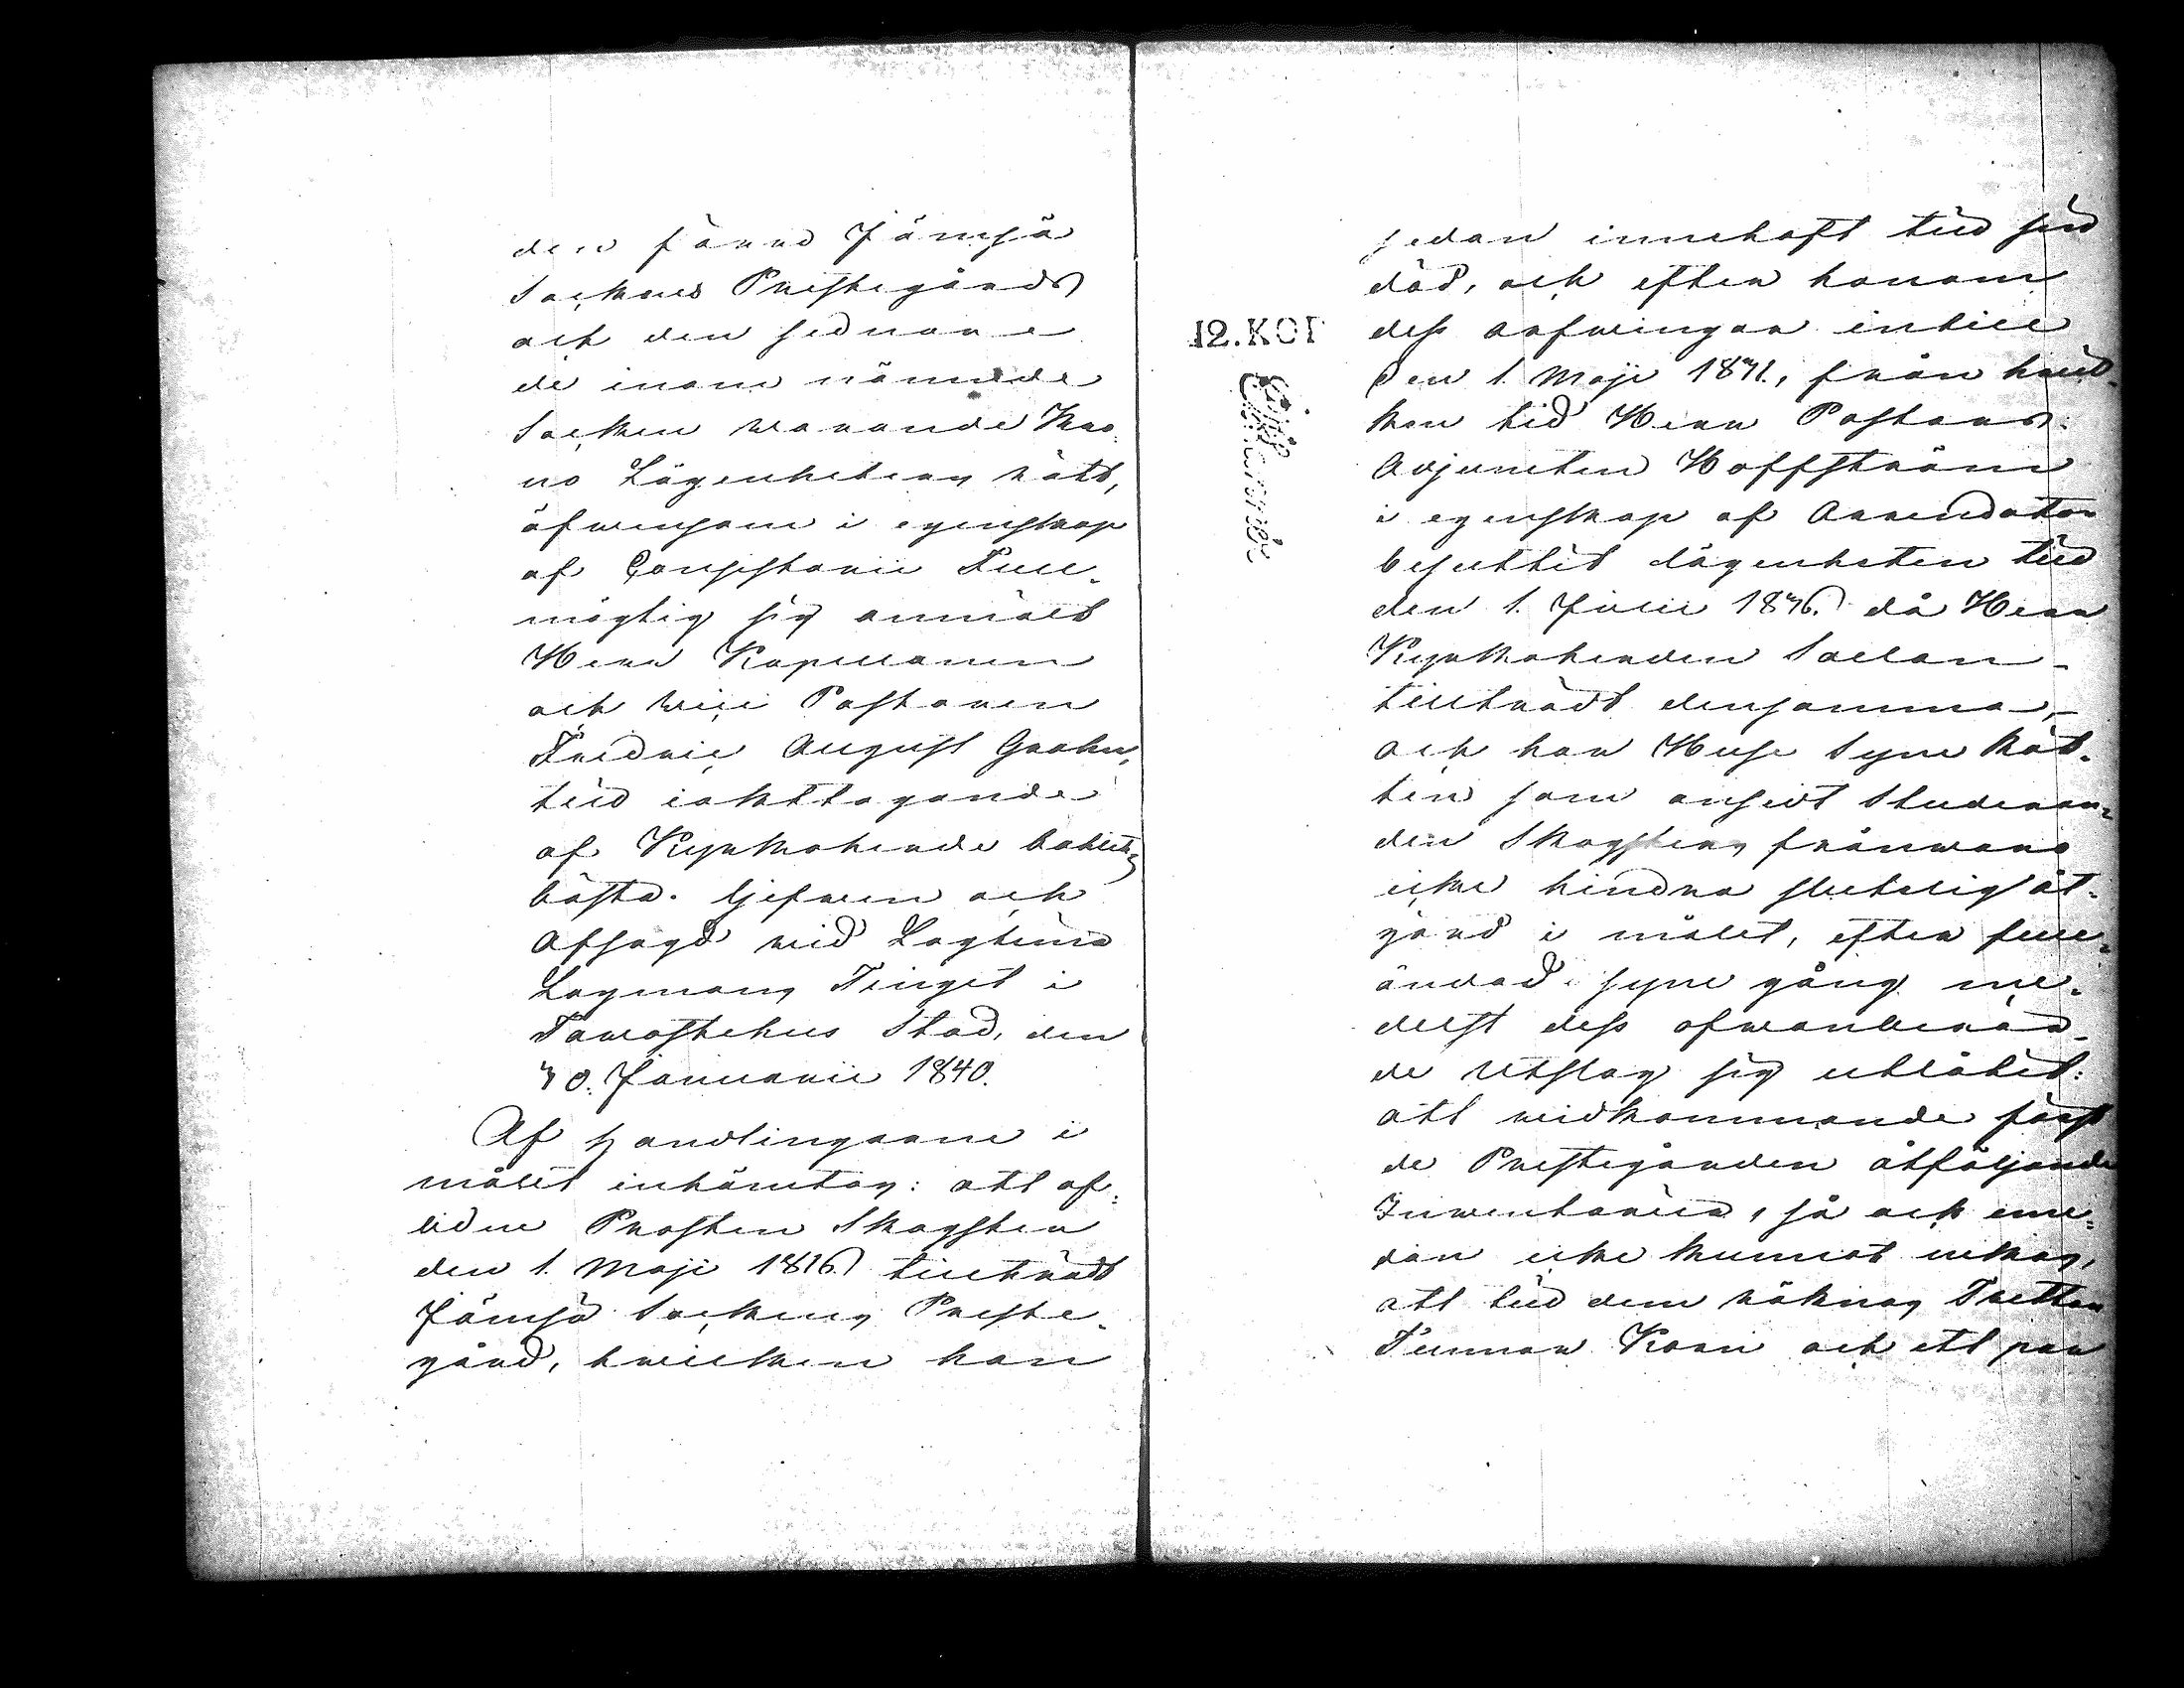 den förra Jämsä
Sockens Prestegårds
och den sednar e
de inom nämnde
Socken warande Kro¬
no Lägenheters rätt,
äfwensom i egenskap
af Consistorii Full¬
mägtig sig anmält
Herr Kapellanen
och Vice Pastoren
Fredric August Grahn,
till iakttagande
af Kyrkoherde bohlets
bästa. Gifwen och
Afsagd wid Lagtima
Lagmans Tinget i
Tawastehus Stad, den
30. Januarii 1840.
Af handlingarne i
målet inhämtas: att af¬
lidne Prosten Skogster
den 1. Maji 1816. tillträdt
Jämsä Sockens Preste¬
gård, hwilken han
sedan innehaft till sin
död, och efter honom
dess arfwingar intill
den 1. Maji 1831., från hwil¬
ken tid Herr Pastors
Adjuncten Hoffström
i egenskap af Arrendator
besuttit lägenheten till
den 1. Julii 1836. då Herr
Kyrkoherden Sallen
tillträdt densamma,
och har Huse Syne Rät¬
ten som ansedt Studeran¬
den Skogsters frånwaro
icke hindra slutelig åt¬
gärd i målet, efter full¬
ändad syne gång me¬
delst dess ofwanberörd
de Utslag sig utlåtit:
att widkommande först
de Prestegården åtföljande
Inwentarier, så och eme¬
dan icke kunnat utrönas,
att till dem räknas Tretton
Tunnor Korn och ett par
12. KOI